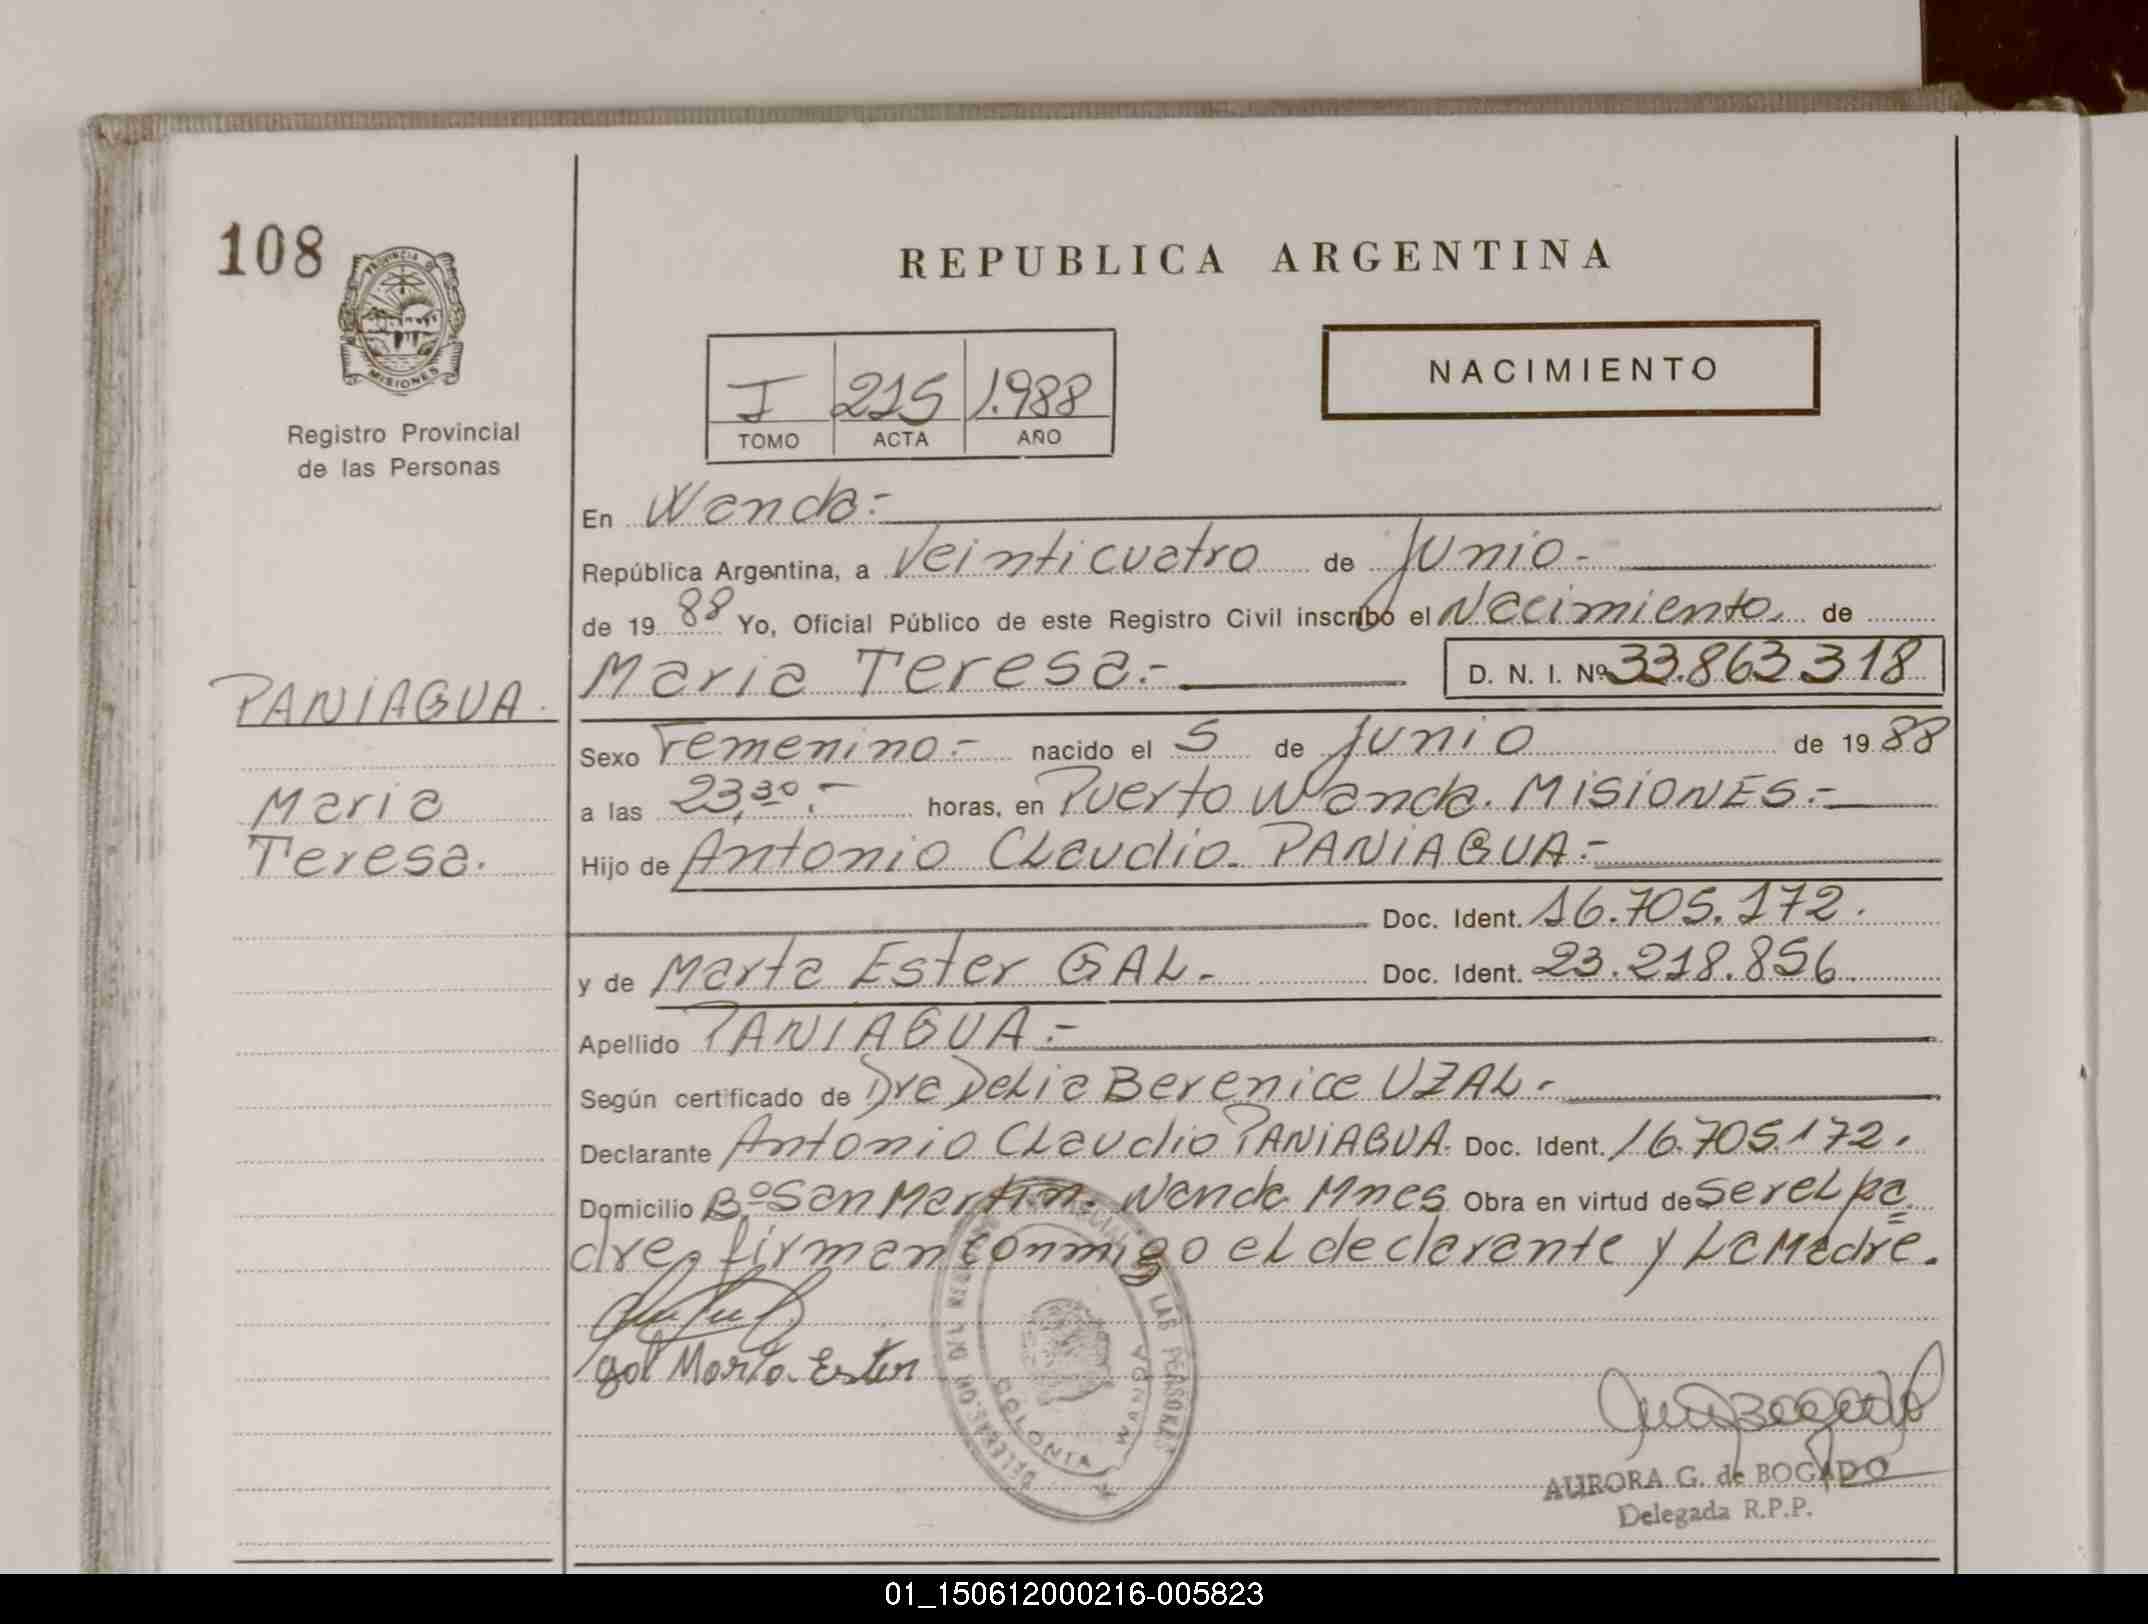 108
PROVINCIA DE
MISIONES
Registro Provincial
de las Personas
REPUBLICA ARGENTINA
I 215 1.988
TOMO ACTA AÑO
NACIMIENTO
En Wanda.-
República Argentina, a Veinticuatro de Junio.-
de 19 88 Yo, Oficial Público de este Registro Civil inscribo el Nacimiento. de
Maria Teresa.- D. N. I. Nº 33.863.318
PANIAGUA.
Maria
Teresa.
Sexo Femenino.- nacido el 5 de Junio de 19 88
a las 23,30.- horas, en Puerto Wanda. MISIONES.-
Hijo de Antonio Claudio. PANIAGUA.-
Doc. Ident. 16.705.172.
y de Marta Ester GAL.- Doc. Ident. 23.218.856
Apellido PANIAGUA.-
Según certificado de Dra Delia Berenice UZAL.-
Declarante Antonio Claudio PANIAGUA. Doc. Ident. 16.705.172.
Domicilio Bº San Martin. Wanda Mnes Obra en virtud de ser el pa=
dre, firman conmigo el declarante y La Madre.
gal Marta Ester
COLONIA WANDA
AURORA G. de BOGADO
Delegada R.P.P.
01_150612000216-005823